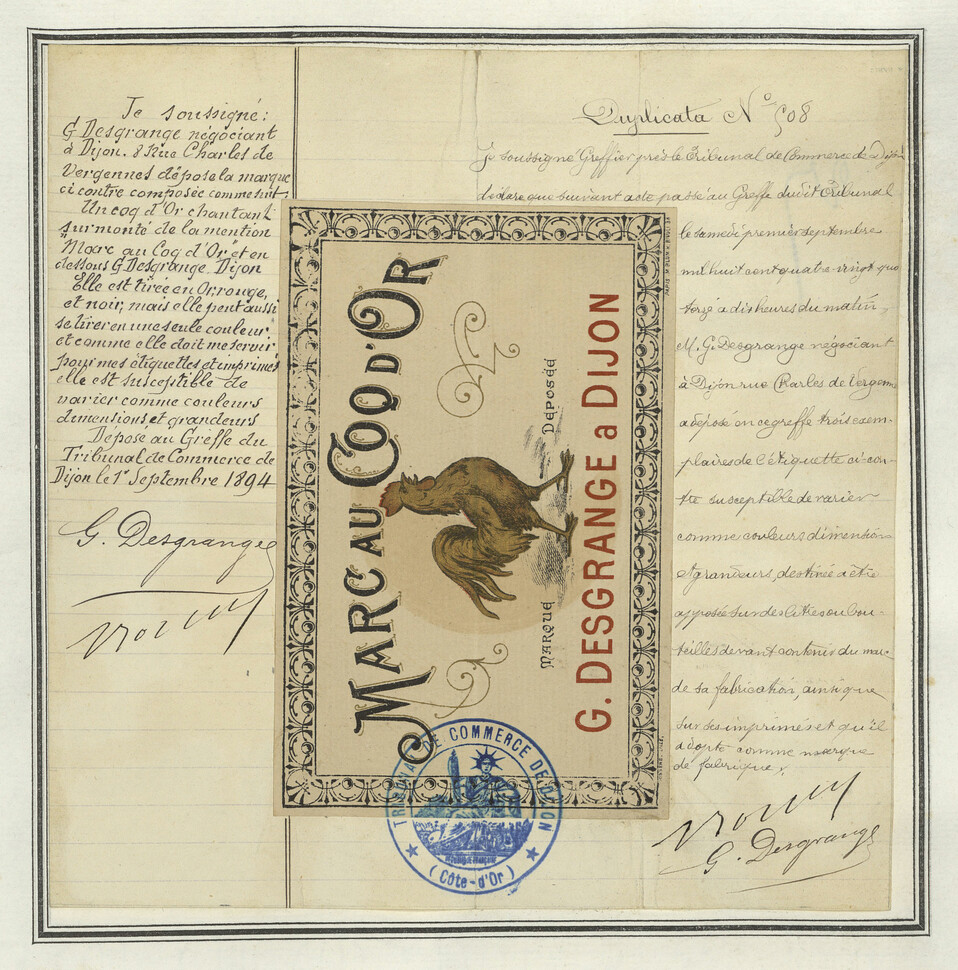 Je soussigné:
G Desgrange négociant
à Dijon. 8 Rue Charles de
Vergennes dépose la marque
ci contre composée comme suit
Un coq d'Or chantant
surmonté de la mention
"Marc au Coq d'Or" et en
dessous G. Desgrange Dijon
Elle est tirée en Or, rouge,
et noir, mais elle peut aussi
se tirer en une seule couleur
et comme elle doit me servir
pour mes étiquettes et imprimés
elle est susceptible de
varier comme couleurs
dimensions et grandeurs
Déposé au Greffe du
Tribunal de Commerce de
Dijon le 1er Septembre 1894
G. Desgrange
Duplicata No 508
Je soussigné Greffier près le Tribunal de Commerce de Dijon
déclare que suivant acte passé au Greffe du dit Tribunal
le samedi premier septembre
mil huit cent quatre vingt qua
torze a dix heures du matin,
M. G. Desgrange négociant
à Dijon rue Charles de Vergennes
a déposé en ce greffe trois exem-
plaires de l'étiquette ci-con-
tre susceptible de varier
comme couleurs dimensions
et grandeurs, destinée a être
apposée sur des litres ou bou-
teilles devant contenir du marc
de sa fabrication, ainsi que
sur des imprimés et qu'il
adopte comme marque
de fabrique.
G. Desgrange
MARC AU COQ D'OR
MARQUE DÉPOSÉE
G. DESGRANGE a DIJON
TRIBUNAL DE COMMERCE DE DIJON
(Côte-d'Or)